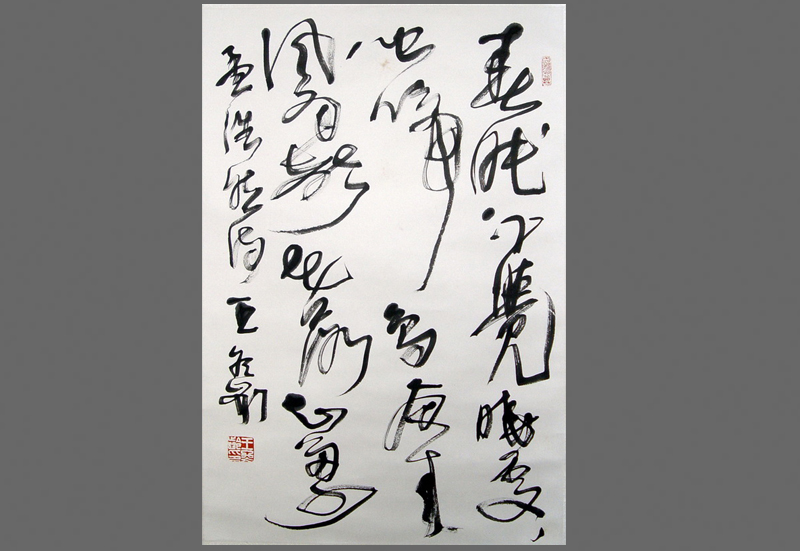 春眠不覺曉處々
聞啼鳥夜来
風雨聲花落知多少
孟浩然詩 王冬齡